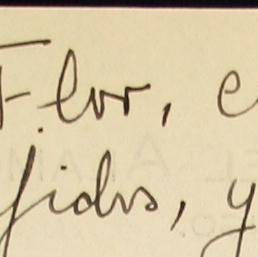 Flor, e
jidos, y